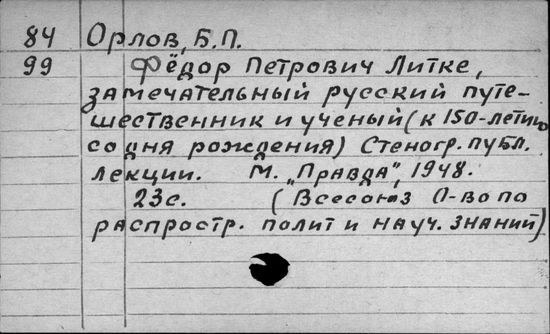 84 Орлов, Б.П.
99 Фёдор Петрович Литке,
замечательный русский путе-
шественник и учёный (к 150-летию
со дня рождения) Стеногр. публ.
лекции. М. „Правда", 1948.
23с. (Всесоюз О-во по
распростр. полит и науч. знаний)